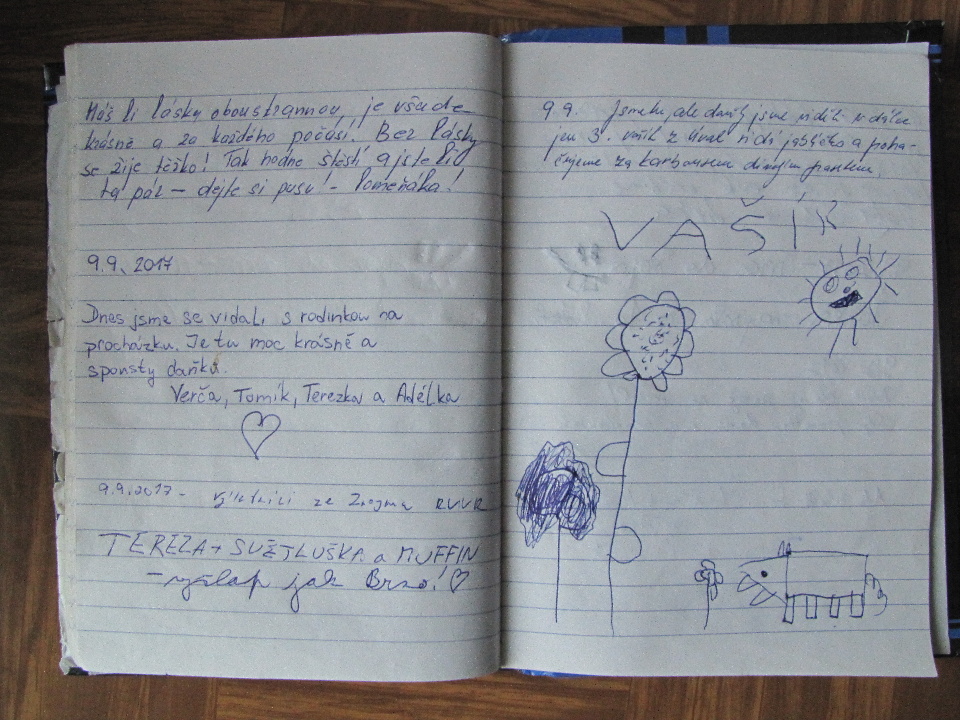 Máš li lásky oboustrannou, je všude
krásně a za každého počasí! Bez lásky
se žije těžko! Tak hodně štěstí a jste li
tu pár – dejte si pusu! –
9.9. 2017
Dnes jsme se vidali s rodinkou na
procházku. Je tu moc krásně a
spousty daňků.
Verča, Tomík, Terezka a Adélka
9.9.2017 - výletníci ze Znojma
TEREZA + SVĚTLUŠKA a MUFFIN
– výšlap jak Brno!
9.9. Jsme tu, ale daňky jsme viděli v dálce
jen 3.
za karbousem divným prasetem.
VAŠÍK